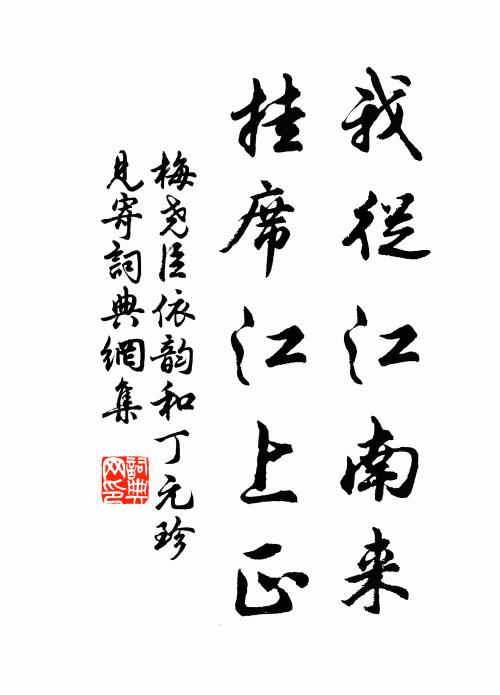 我從江南来
挂席江上正
梅堯臣依韵和丁元珍
見寄詞典網集
詞典
网印